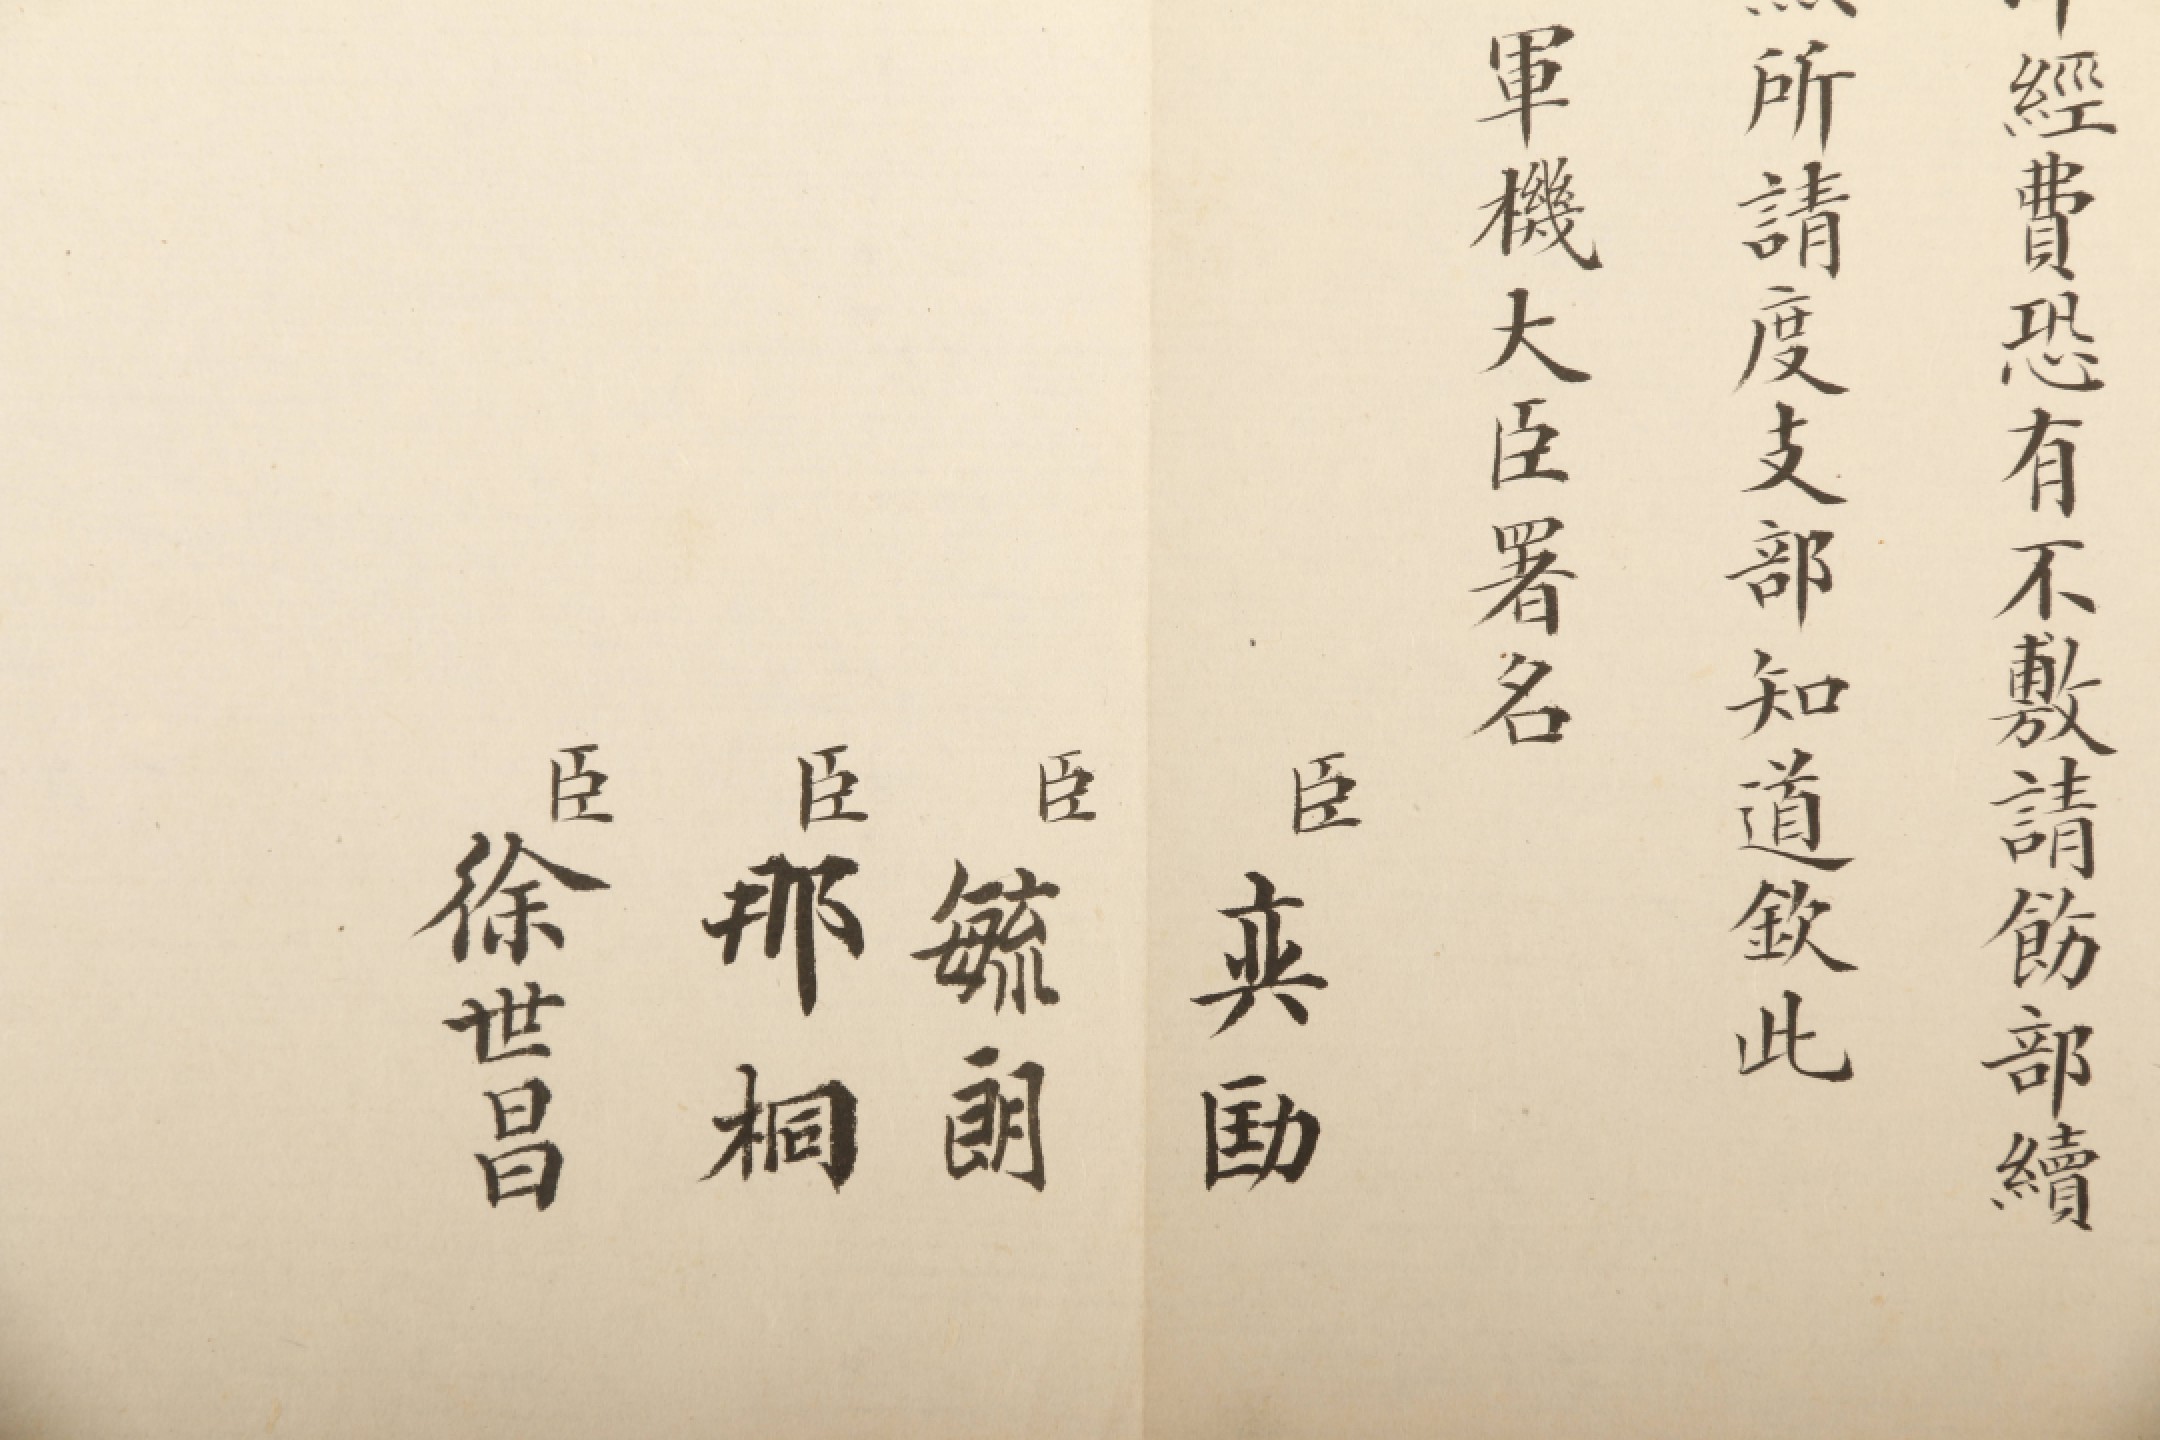 經費恐有不敷請飭部續
所請度支部知道欽此
軍機大臣署名
臣奕劻
臣毓朗
臣那桐
臣徐世昌